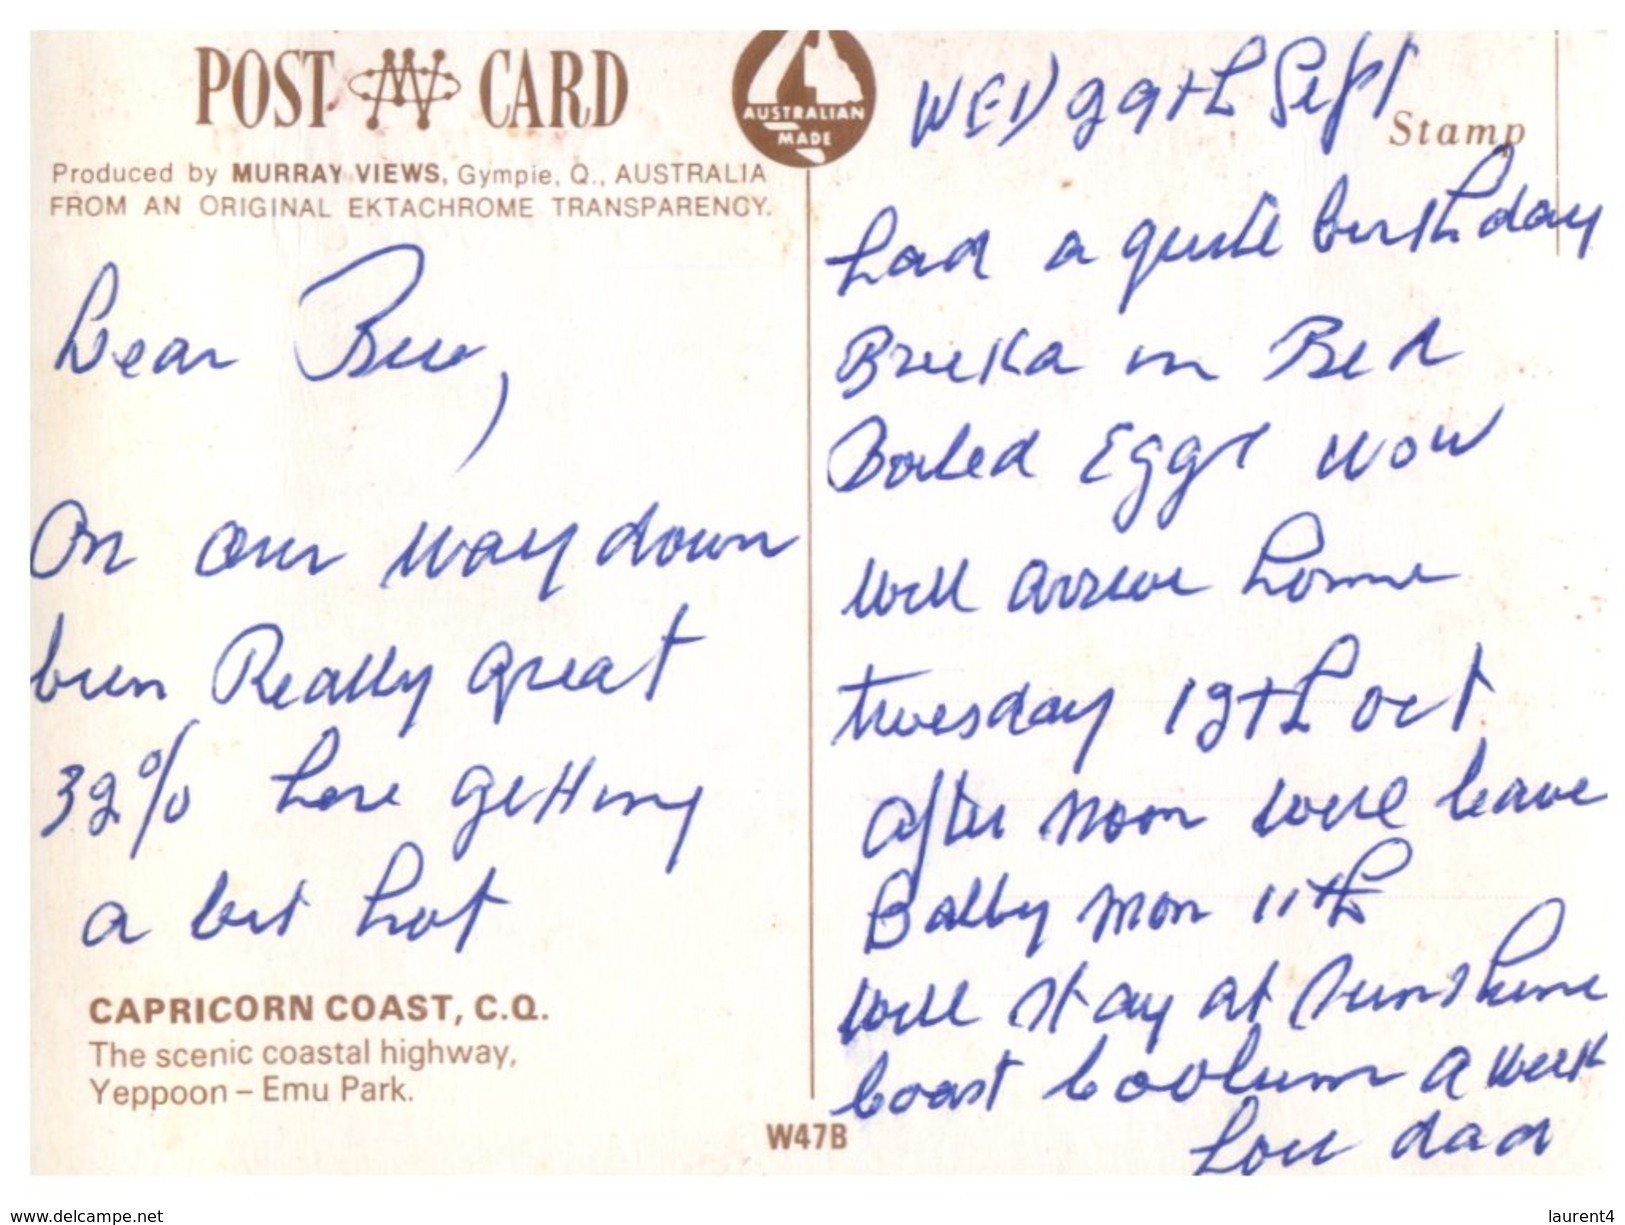 POST CARD
AUSTRALIAN
MADE
Produced by MURRAY VIEWS, Gympie, Q., AUSTRALIA
FROM AN ORIGINAL EKTACHROME TRANSPARENCY.
Stamp
Dear
On our way down
been Really great
32% here getting
a bit hot
CAPRICORN COAST, C.Q.
The scenic coastal highway,
Yeppoon – Emu Park.
W47B
WED 29th Sept
had a quite birthday
Brecka in Bed
Boiled Eggs wow
will arrive home
tuesday 19th oct
after noon will leave
Balby mon 11th
will stay at sunshine
coast coolum a week
Love dad
www.delcampe.net
laurent4